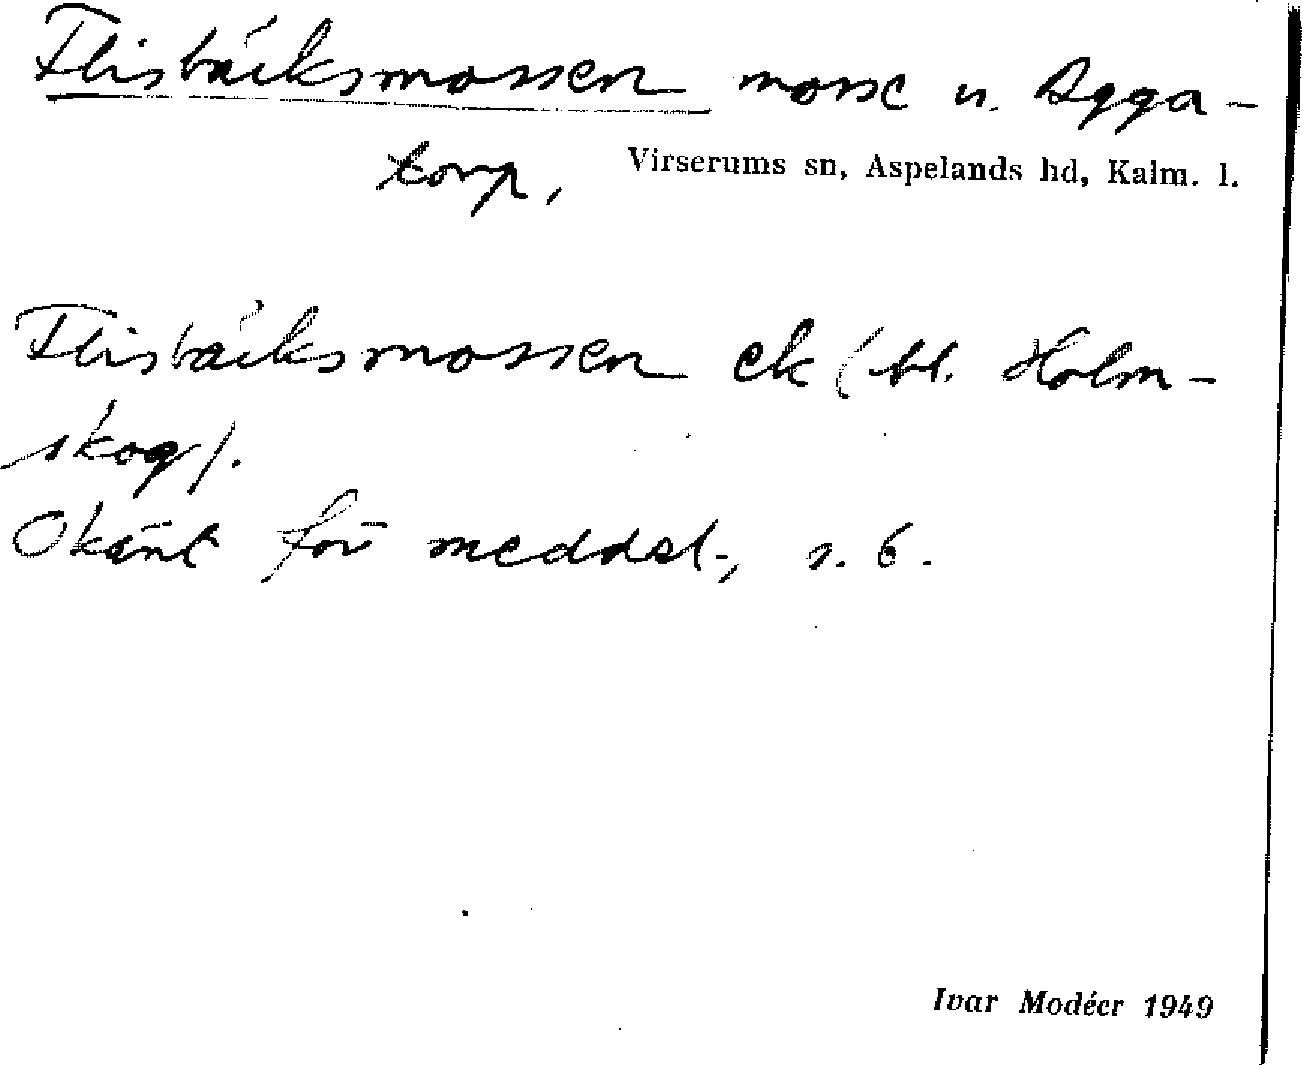 Flisbäcksmossen mosse u. Agga-
torp, Virserums sn, Aspelands hd, Kalm. l.
Flisbäcksmossen ek (bl. Holm-
skog).
Okänt för meddel., s. 6.
Ivar Modéer 1949